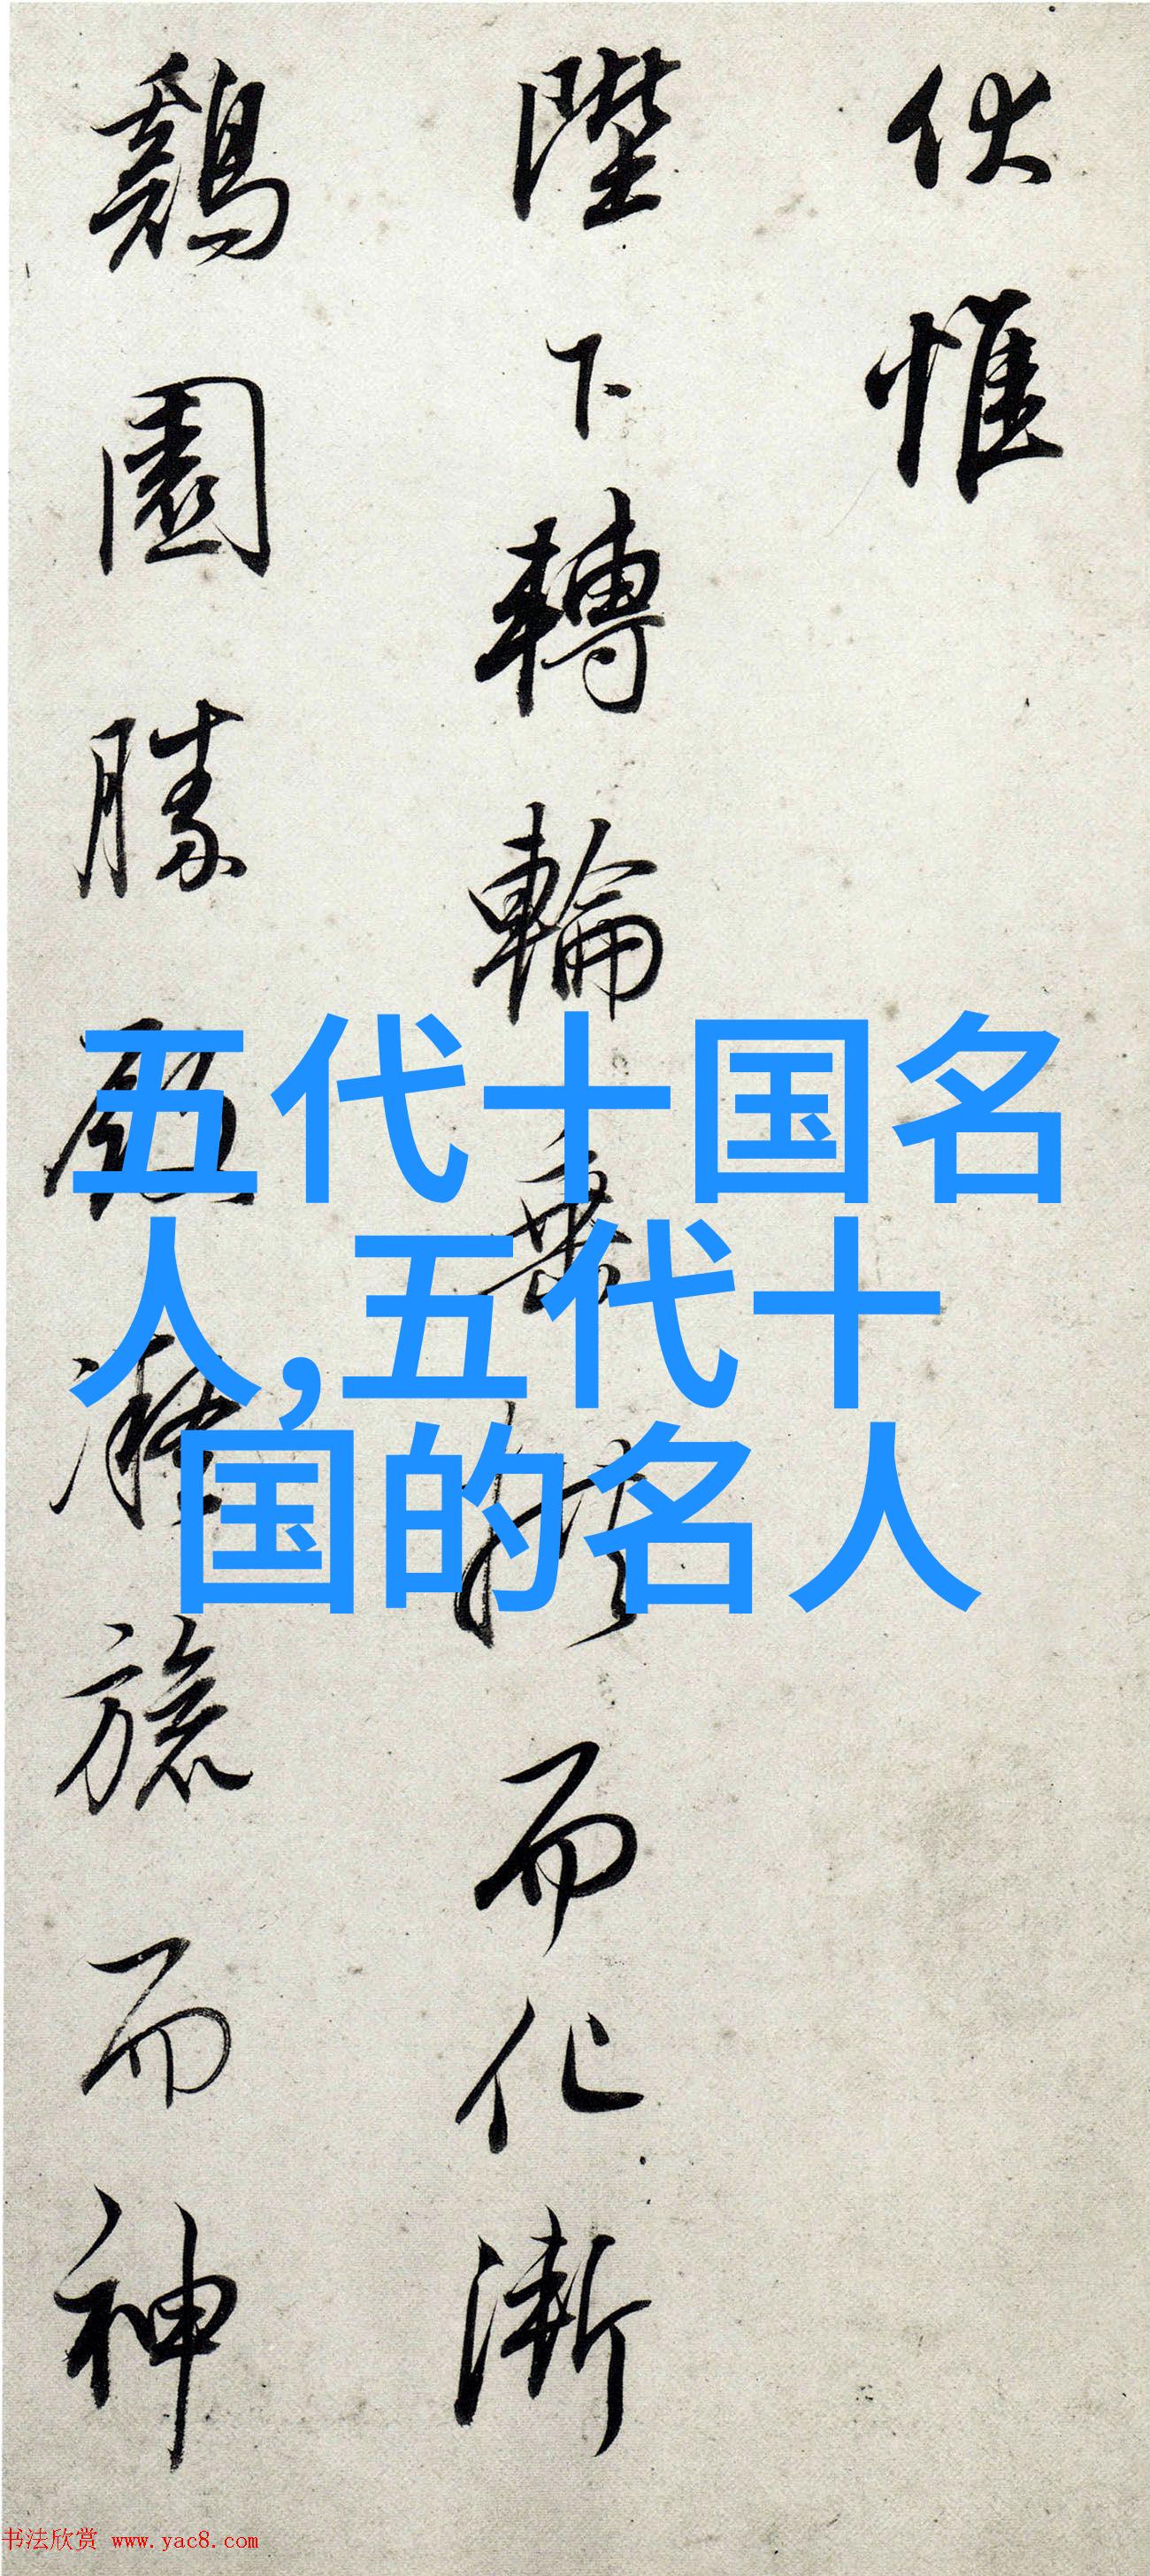 伏惟
陛下轉輪
而化漸
鷄園勝
旅而神
五代十国名
人,五代十
国的名人
书法欣赏 www.yac8.com